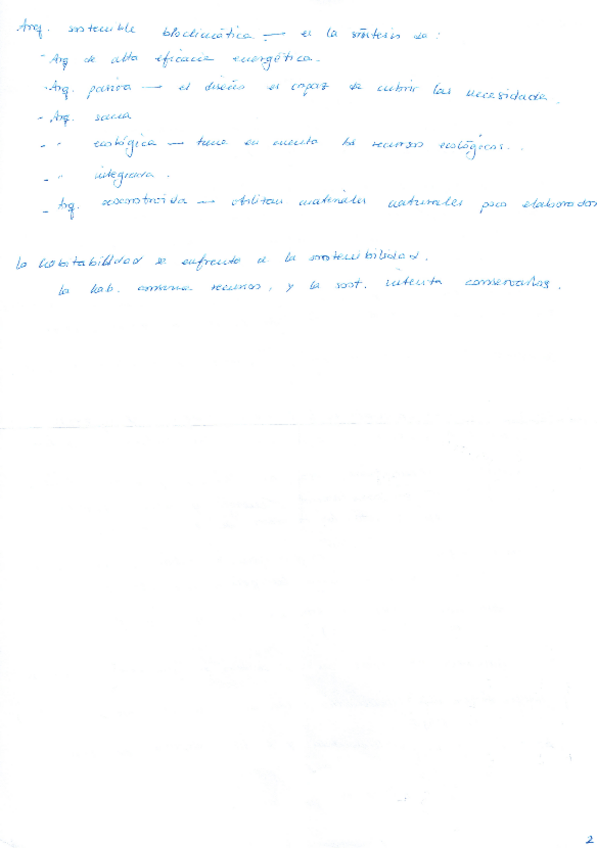 Arq. sostenible bioclimática — es la síntesis de:
- Arq de alta eficacia energética.
- Arq. pasiva — el diseño es capaz de cubrir las necesidades.
- Arq. sana
- " ecológica — tiene en cuenta los recursos ecológicos.
- " integradora.
- Arq. — utilizan materiales naturales poco elaborados
La habitabilidad se enfrenta a la sostenibilidad.
La hab. consume recursos, y la sost. intenta conservarlos.
2